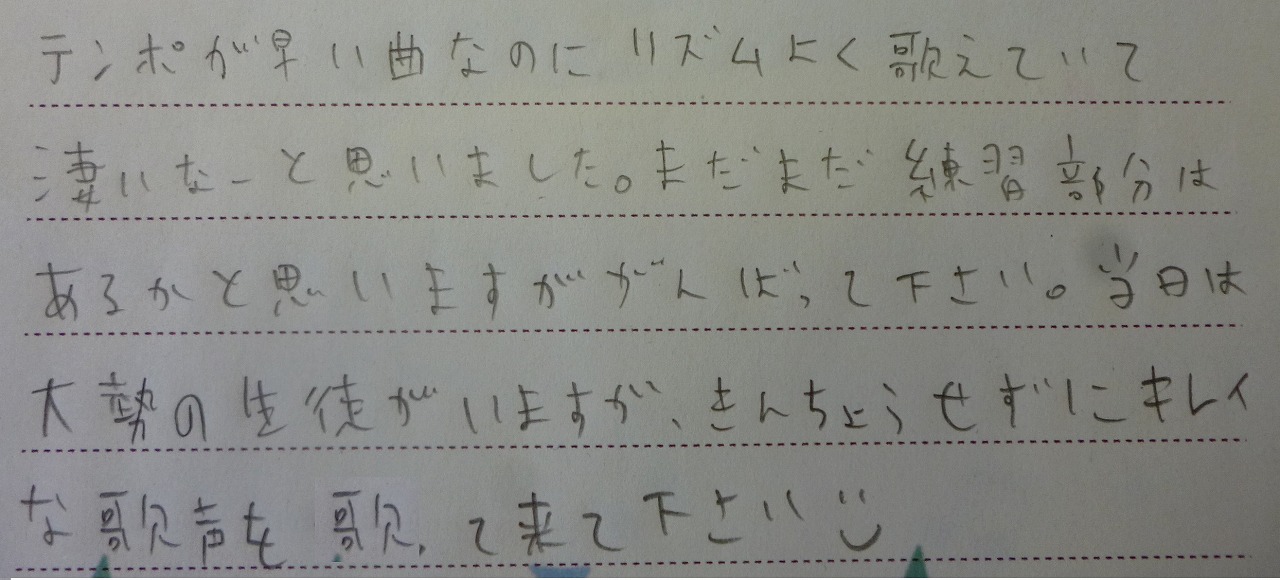 テンポが早い曲なのにリズムよく歌えていて
凄いなーと思いました。まだまだ練習部分は
あるかと思いますががんばって下さい。当日は
大勢の生徒がいますが、きんちょうせずにキレイ
な歌声を歌って来て下さい